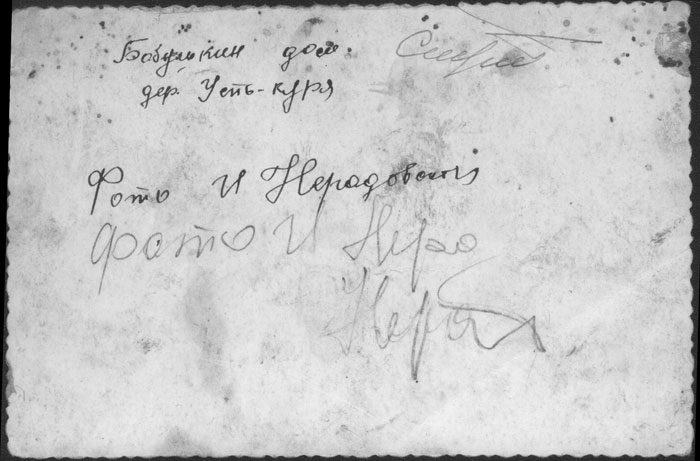 Бабушкин дом
дер. Усть-куря
Фото И Нерадовский
фото И Нера
Нера